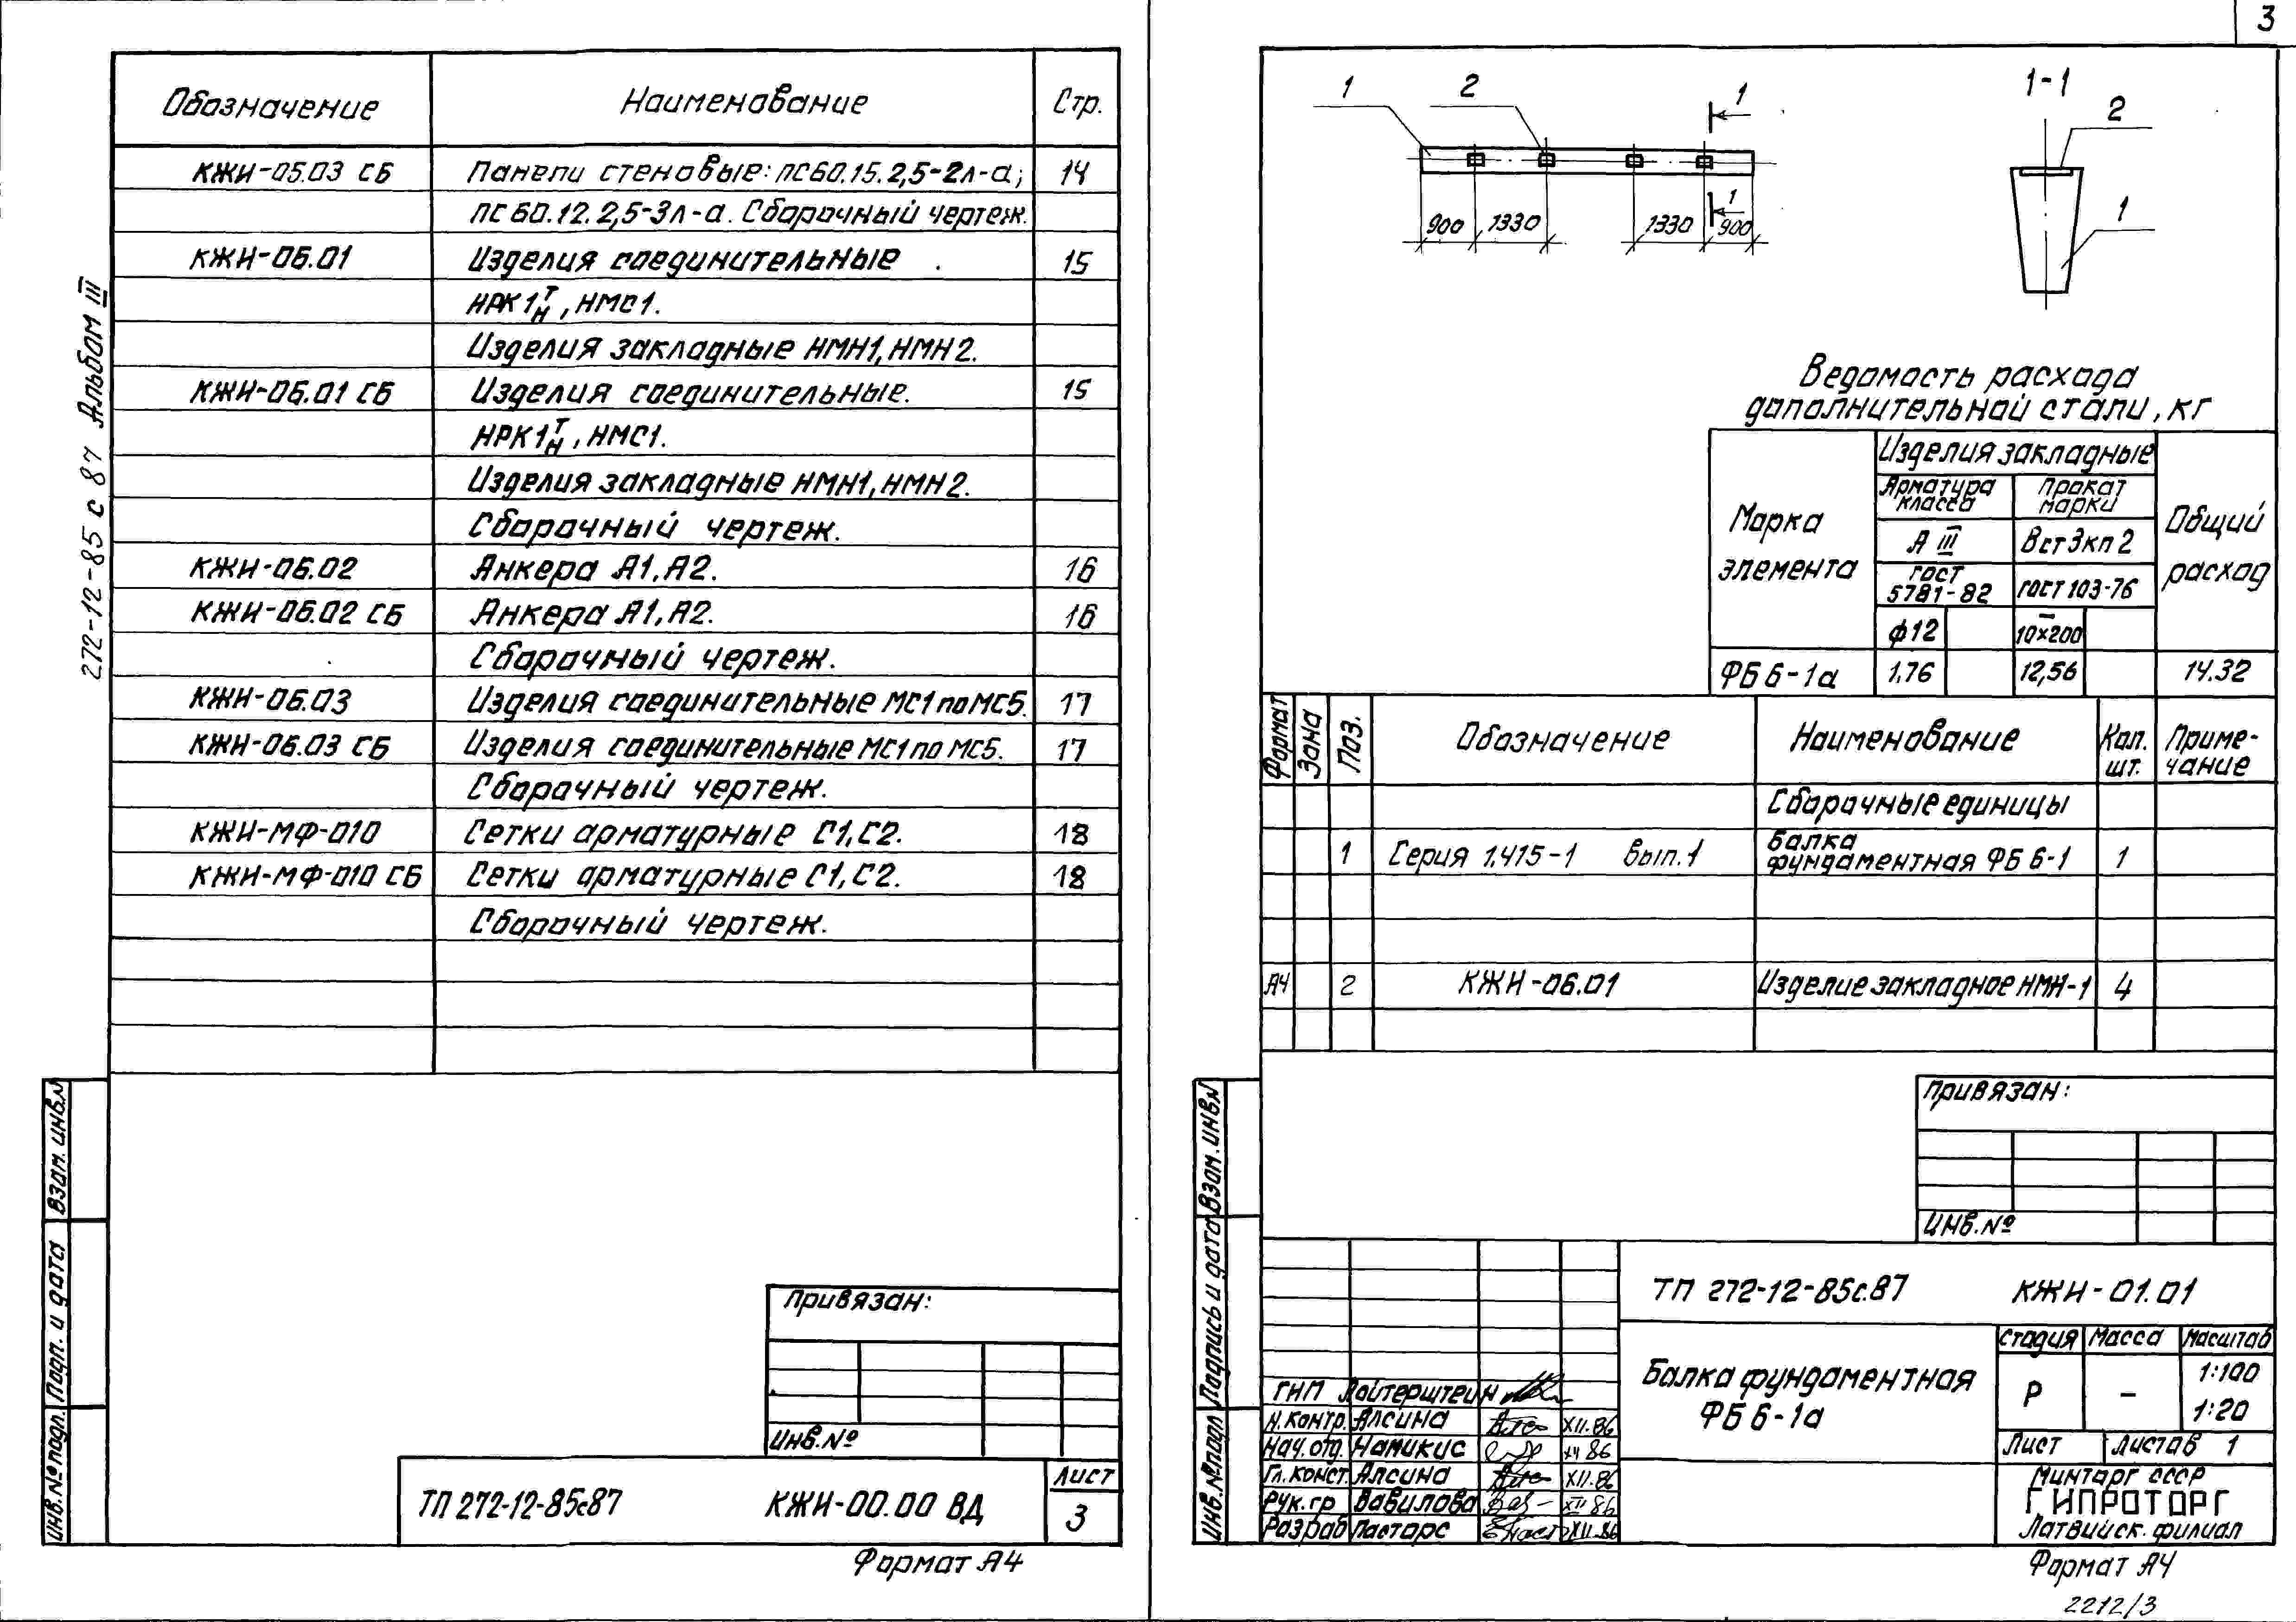 3
272-12-85 с 87 Альбом III
Обозначение Наименование Стр.
КЖИ-05.03 СБ Панели стеновые: ПС60.15.2,5-2л-а; 14
ПС60.12.2,5-3л-а. Сборочный чертеж.
КЖИ-06.01 Изделия соединительные 15
НРК1 Т/Н, НМС1.
Изделия закладные НМН1, НМН2.
КЖИ-06.01 СБ Изделия соединительные. 15
НРК1 Т/Н, НМС1.
Изделия закладные НМН1, НМН2.
Сборочный чертеж.
КЖИ-06.02 Анкера А1, А2. 16
КЖИ-06.02 СБ Анкера А1, А2. 16
Сборочный чертеж.
КЖИ-06.03 Изделия соединительные МС1 по МС5. 17
КЖИ-06.03 СБ Изделия соединительные МС1 по МС5. 17
Сборочный чертеж.
КЖИ-МФ-010 Сетки арматурные С1, С2. 18
КЖИ-МФ-010 СБ Сетки арматурные С1, С2. 18
Сборочный чертеж.
Взам. инв.N
Подп. и дата
Инв.№ подл.
Привязан:
Инв.№
ТП 272-12-85с87 КЖИ-00.00 ВД
Лист
3
Формат А4
1 2 1
900 1330 1330 900
1
1-1
2
1
Ведомость расхода
дополнительной стали, кг
Марка элемента
Изделия закладные
Арматура класса
Прокат марки
А III
ВСт3кп2
ГОСТ 5781-82
ГОСТ 103-76
ф12
–10×200
Общий расход
ФБ6-1а 1,76 12,56 14.32
Формат Зона Поз. Обозначение Наименование Кол. шт. Приме-чание
Сборочные единицы
1 Серия 1.415-1 вып.1 Балка фундаментная ФБ6-1 1
А4 2 КЖИ-06.01 Изделие закладное НМН-1 4
Взам. инв.N
Подпись и дата
Инв.№ подл
Привязан:
Инв.№
ТП 272-12-85с.87 КЖИ-01.01
Балка фундаментная
ФБ6-1а
Стадия Масса Масштаб
Р – 1:100
1:20
Лист Листов 1
Минторг СССР
ГИПРОТОРГ
Латвийск. филиал
ГИП
Н.контр. Алсина XII.86
Нач.отд. Намикис XII 86
Гл.конст. Алсина XII.86
Рук.гр Вавилова XII 86
Разраб Пастарс XII.86
Формат А4
2212/3